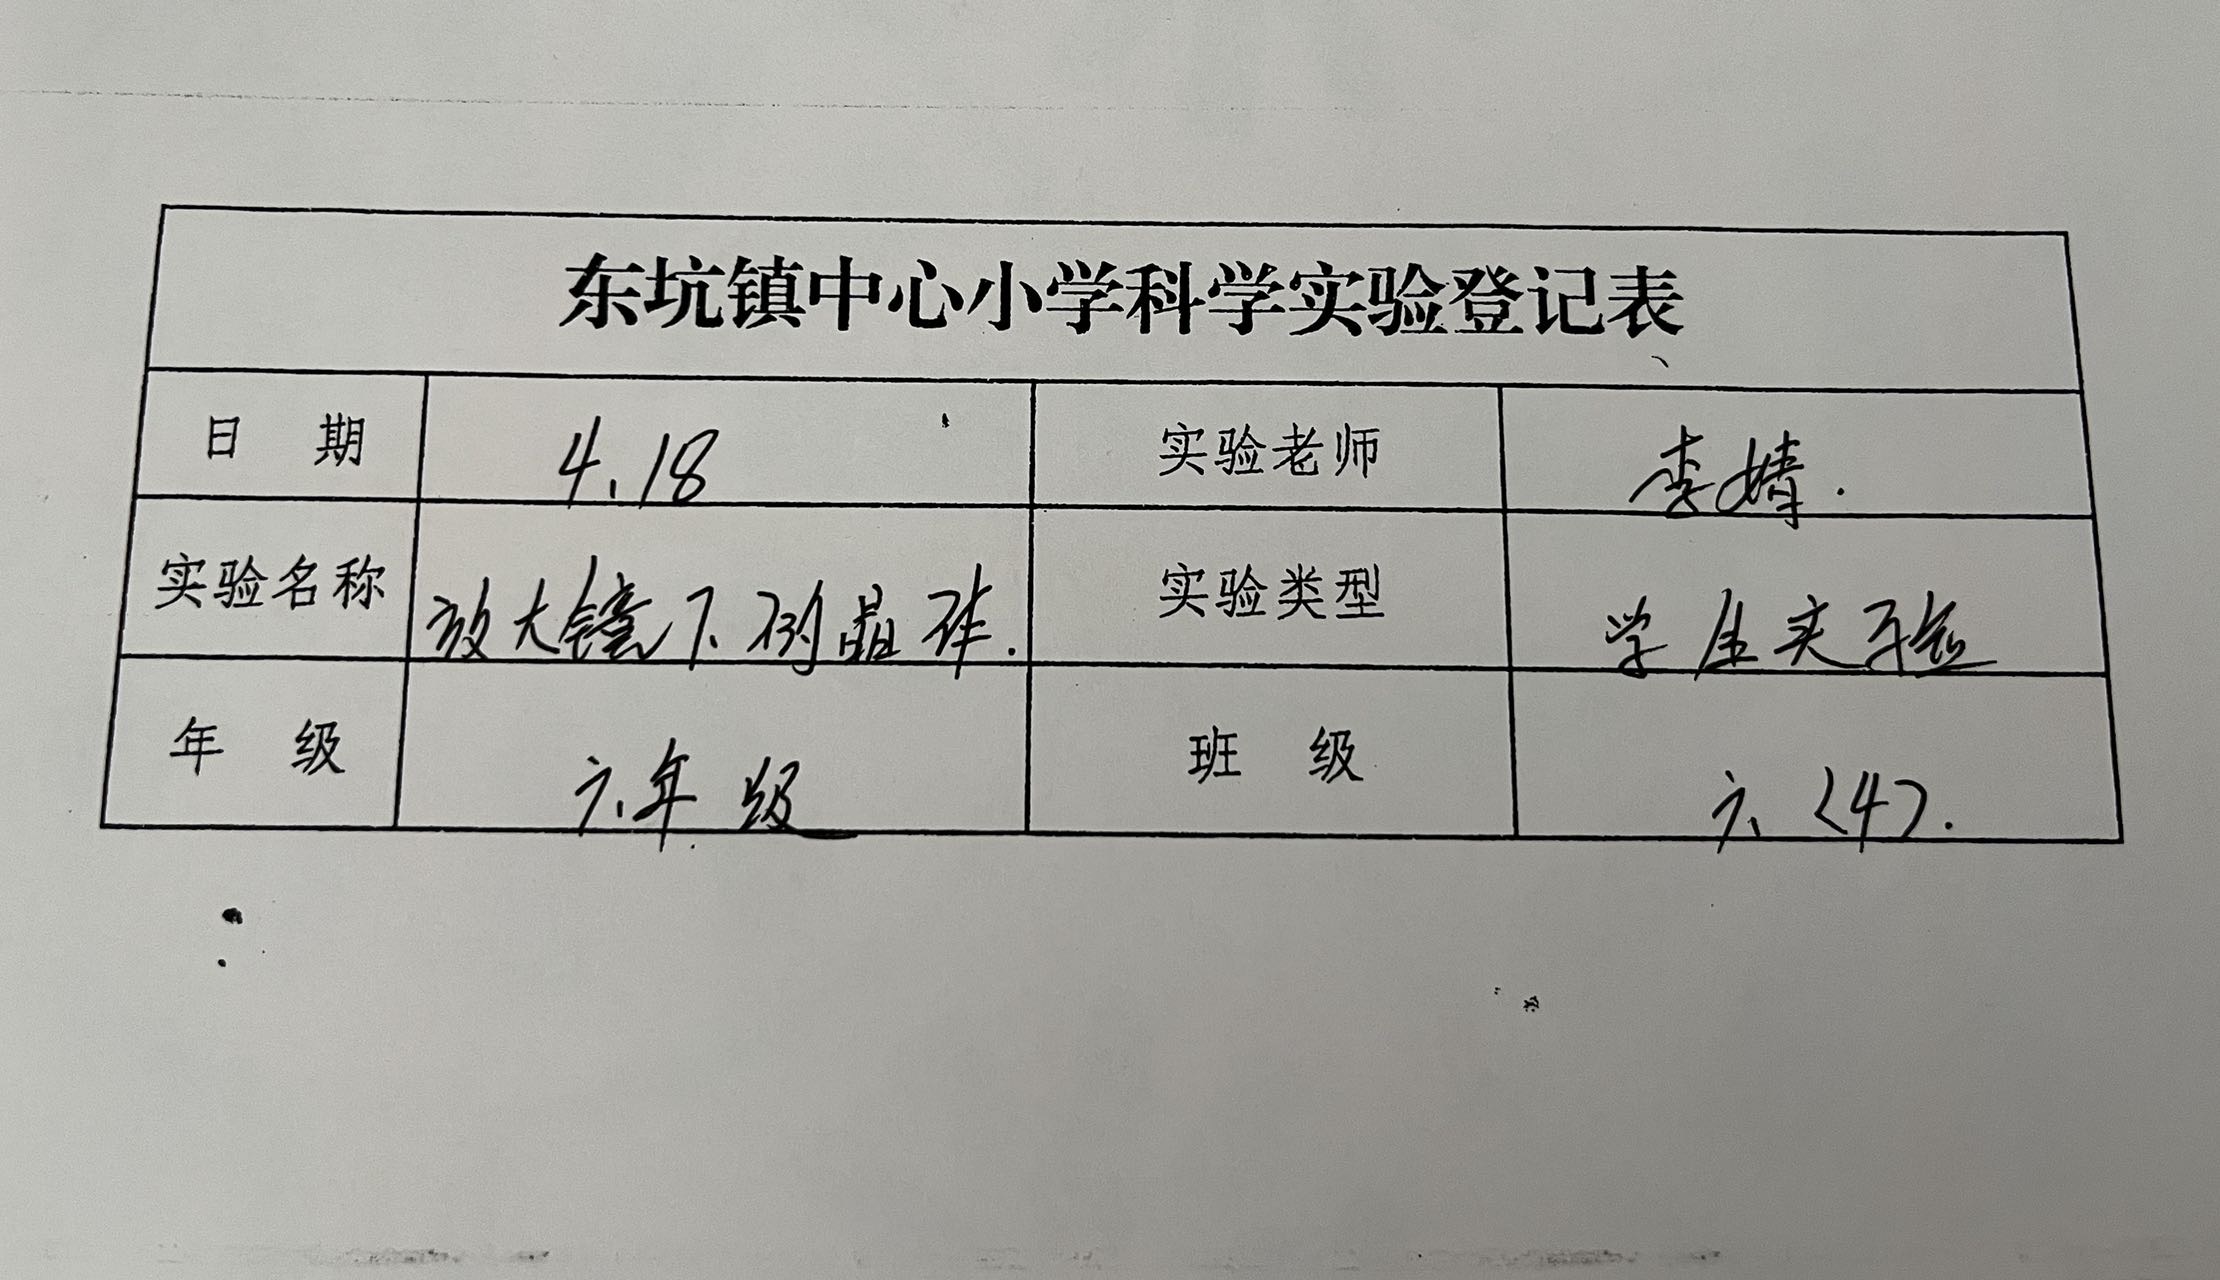 东坑镇中心小学科学实验登记表
日 期 4.18 实验老师 李婧.
实验名称 放大镜下的晶体. 实验类型 学生实验
年 级 六年级 班 级 六(4).